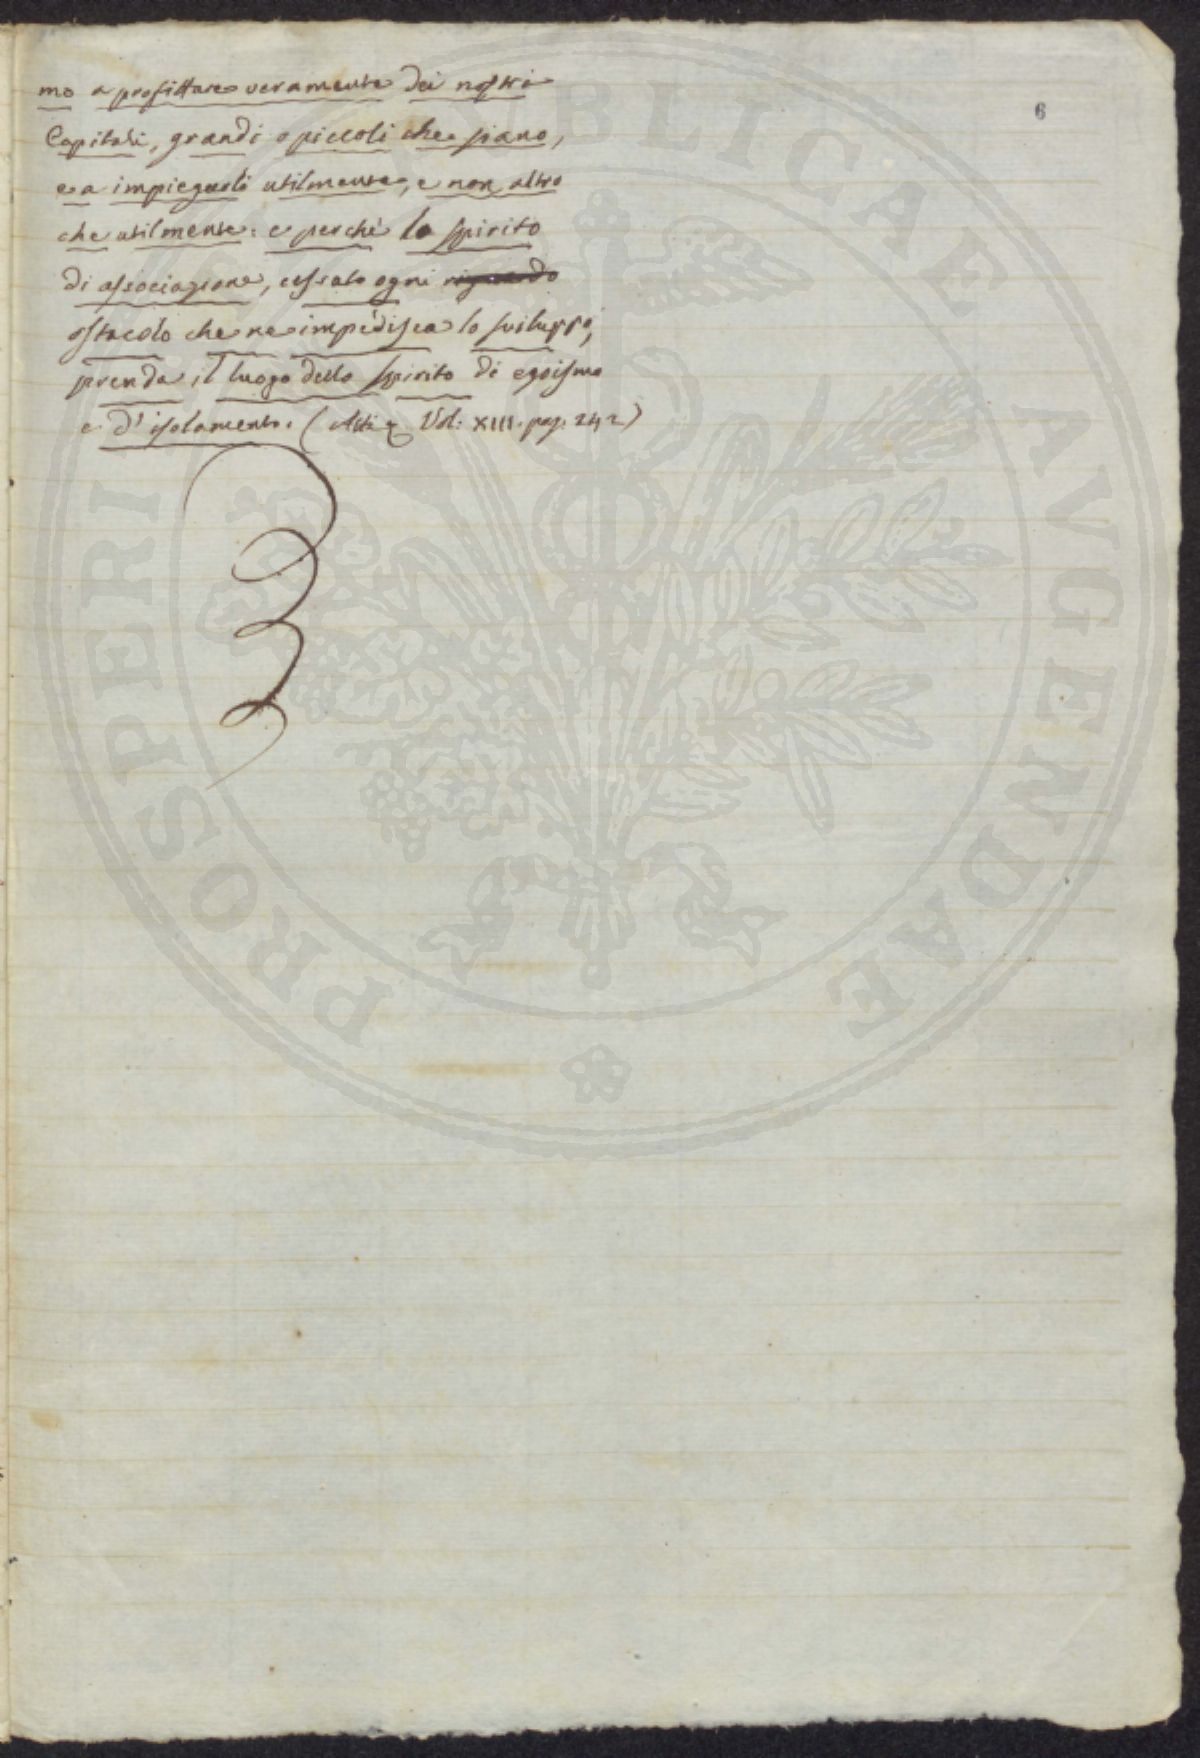 6
mo a profittare veramente dei nostri
Capitali, grandi o piccoli che siano,
e a impiegarli utilmente, e non altro
che utilmente: e perchè lo spirito
di associazione, cessato ogni riguardo
ostacolo che ne impedisca lo sviluppo,
prenda il luogo dello spirito di egoismo
e d'isolamento. (Atti Vol: XIII. pag. 242)
PROSPERI PUBLICAE AVGENDAE